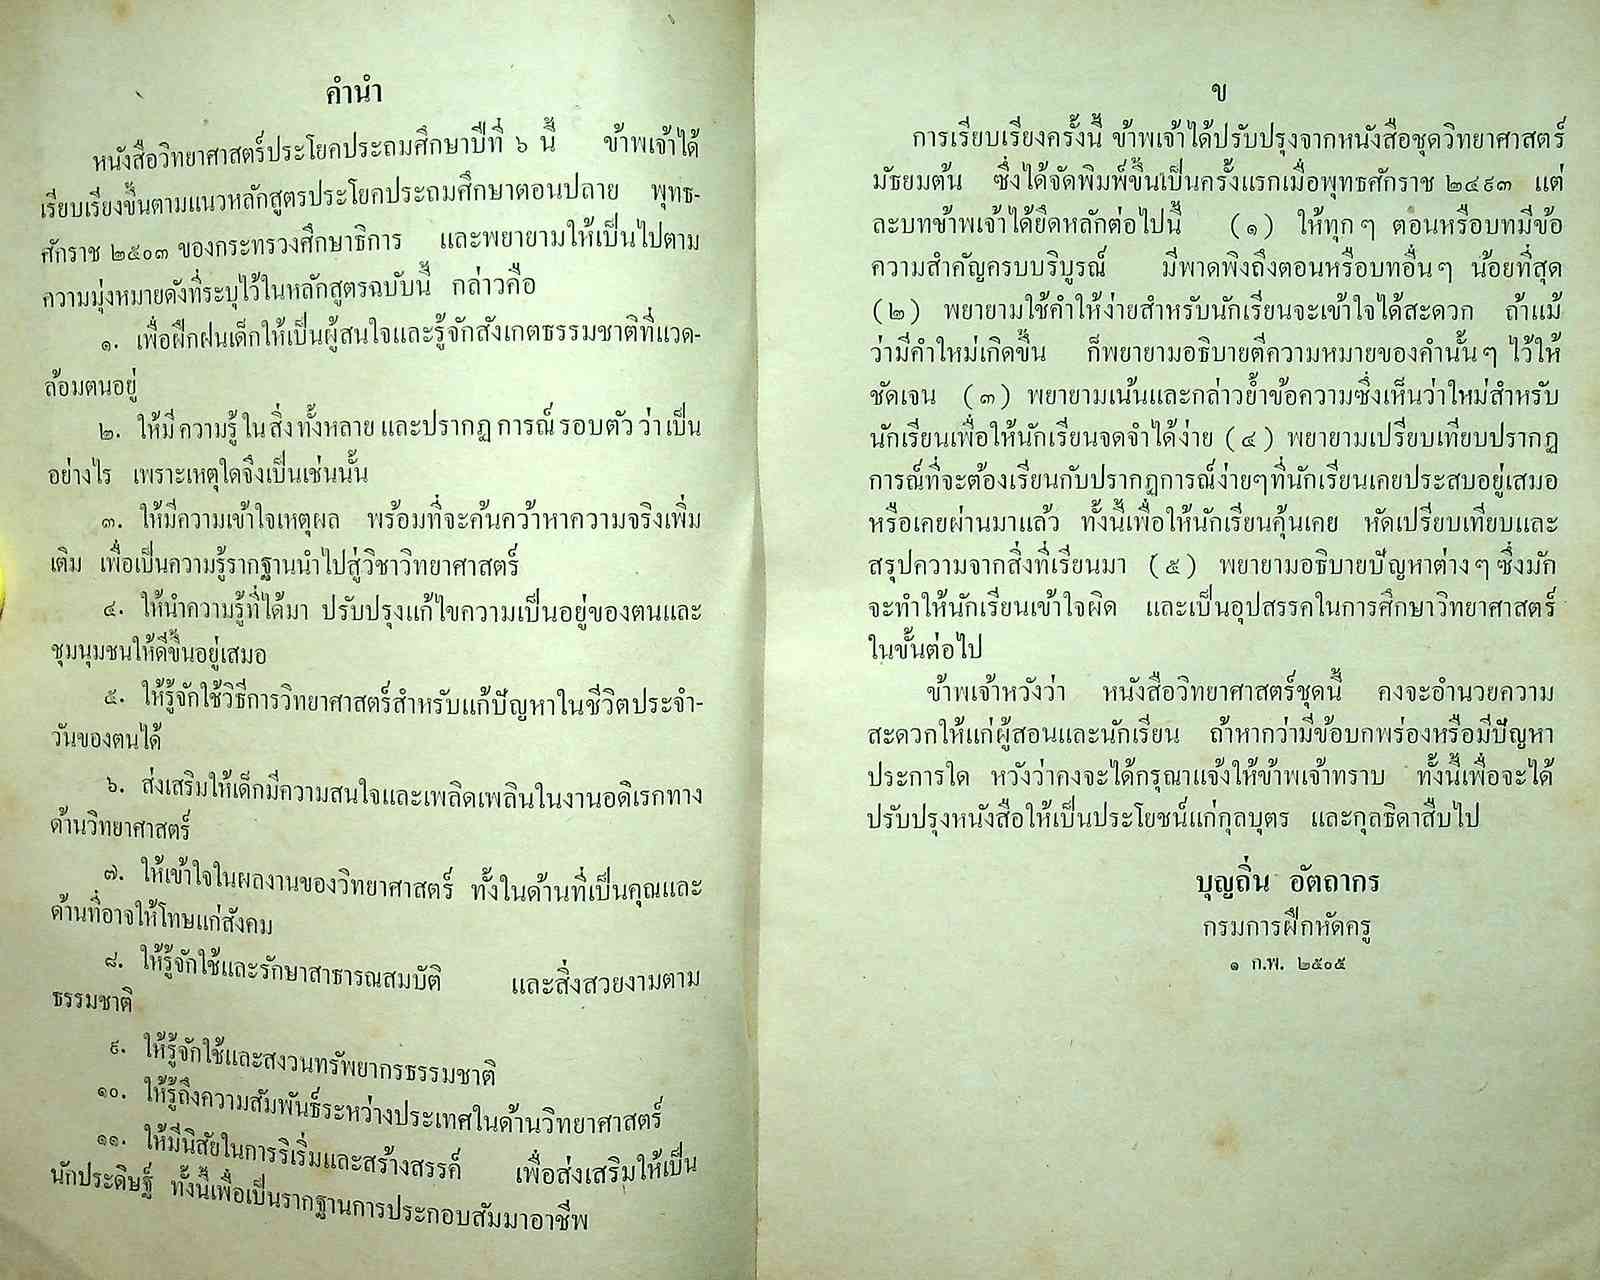 คำนำ
หนังสือวิทยาศาสตร์ประโยคประถมศึกษาปีที่ ๖ นี้ ข้าพเจ้าได้
เรียบเรียงขึ้นตามแนวหลักสูตรประโยคประถมศึกษาตอนปลาย พุทธ-
ศักราช ๒๕๐๓ ของกระทรวงศึกษาธิการ และพยายามให้เป็นไปตาม
ความมุ่งหมายดังที่ระบุไว้ในหลักสูตรฉบับนี้ กล่าวคือ
๑. เพื่อฝึกฝนเด็กให้เป็นผู้สนใจและรู้จักสังเกตธรรมชาติที่แวด-
ล้อมตนอยู่
๒. ให้มีความรู้ในสิ่งทั้งหลายและปรากฏการณ์รอบตัว ว่าเป็น
อย่างไร เพราะเหตุใดจึงเป็นเช่นนั้น
๓. ให้มีความเข้าใจเหตุผล พร้อมที่จะค้นคว้าหาความจริงเพิ่ม
เติม เพื่อเป็นความรู้รากฐานนำไปสู่วิชาวิทยาศาสตร์
๔. ให้นำความรู้ที่ได้มา ปรับปรุงแก้ไขความเป็นอยู่ของตนและ
ชุมนุมชนให้ดีขึ้นอยู่เสมอ
๕. ให้รู้จักใช้วิธีการวิทยาศาสตร์สำหรับแก้ปัญหาในชีวิตประจำ-
วันของตนได้
๖. ส่งเสริมให้เด็กมีความสนใจและเพลิดเพลินในงานอดิเรกทาง
ด้านวิทยาศาสตร์
๗. ให้เข้าใจในผลงานของวิทยาศาสตร์ ทั้งในด้านที่เป็นคุณและ
ด้านที่อาจให้โทษแก่สังคม
๘. ให้รู้จักใช้และรักษาสาธารณสมบัติ และสิ่งสวยงามตาม
ธรรมชาติ
๙. ให้รู้จักใช้และสงวนทรัพยากรธรรมชาติ
๑๐. ให้รู้ถึงความสัมพันธ์ระหว่างประเทศในด้านวิทยาศาสตร์
๑๑. ให้มีนิสัยในการริเริ่มและสร้างสรรค์ เพื่อส่งเสริมให้เป็น
นักประดิษฐ์ ทั้งนี้เพื่อเป็นรากฐานการประกอบสัมมาอาชีพ
ข
การเรียบเรียงครั้งนี้ ข้าพเจ้าได้ปรับปรุงจากหนังสือชุดวิทยาศาสตร์
มัธยมต้น ซึ่งได้จัดพิมพ์ขึ้นเป็นครั้งแรกเมื่อพุทธศักราช ๒๔๙๓ แต่
ละบทข้าพเจ้าได้ยึดหลักต่อไปนี้ (๑) ให้ทุกๆ ตอนหรือบทมีข้อ
ความสำคัญครบบริบูรณ์ มีพาดพิงถึงตอนหรือบทอื่นๆ น้อยที่สุด
(๒) พยายามใช้คำให้ง่ายสำหรับนักเรียนจะเข้าใจได้สะดวก ถ้าแม้
ว่ามีคำใหม่เกิดขึ้น ก็พยายามอธิบายตีความหมายของคำนั้นๆ ไว้ให้
ชัดเจน (๓) พยายามเน้นและกล่าวย้ำข้อความซึ่งเห็นว่าใหม่สำหรับ
นักเรียนเพื่อให้นักเรียนจดจำได้ง่าย (๔) พยายามเปรียบเทียบปรากฏ
การณ์ที่จะต้องเรียนกับปรากฏการณ์ง่ายๆที่นักเรียนเคยประสบอยู่เสมอ
หรือเคยผ่านมาแล้ว ทั้งนี้เพื่อให้นักเรียนคุ้นเคย หัดเปรียบเทียบและ
สรุปความจากสิ่งที่เรียนมา (๕) พยายามอธิบายปัญหาต่างๆ ซึ่งมัก
จะทำให้นักเรียนเข้าใจผิด และเป็นอุปสรรคในการศึกษาวิทยาศาสตร์
ในขั้นต่อไป
ข้าพเจ้าหวังว่า หนังสือวิทยาศาสตร์ชุดนี้ คงจะอำนวยความ
สะดวกให้แก่ผู้สอนและนักเรียน ถ้าหากว่ามีข้อบกพร่องหรือมีปัญหา
ประการใด หวังว่าคงจะได้กรุณาแจ้งให้ข้าพเจ้าทราบ ทั้งนี้เพื่อจะได้
ปรับปรุงหนังสือให้เป็นประโยชน์แก่กุลบุตร และกุลธิดาสืบไป
บุญถิ่น อัตถากร
กรมการฝึกหัดครู
๑ ก.พ. ๒๕๐๕